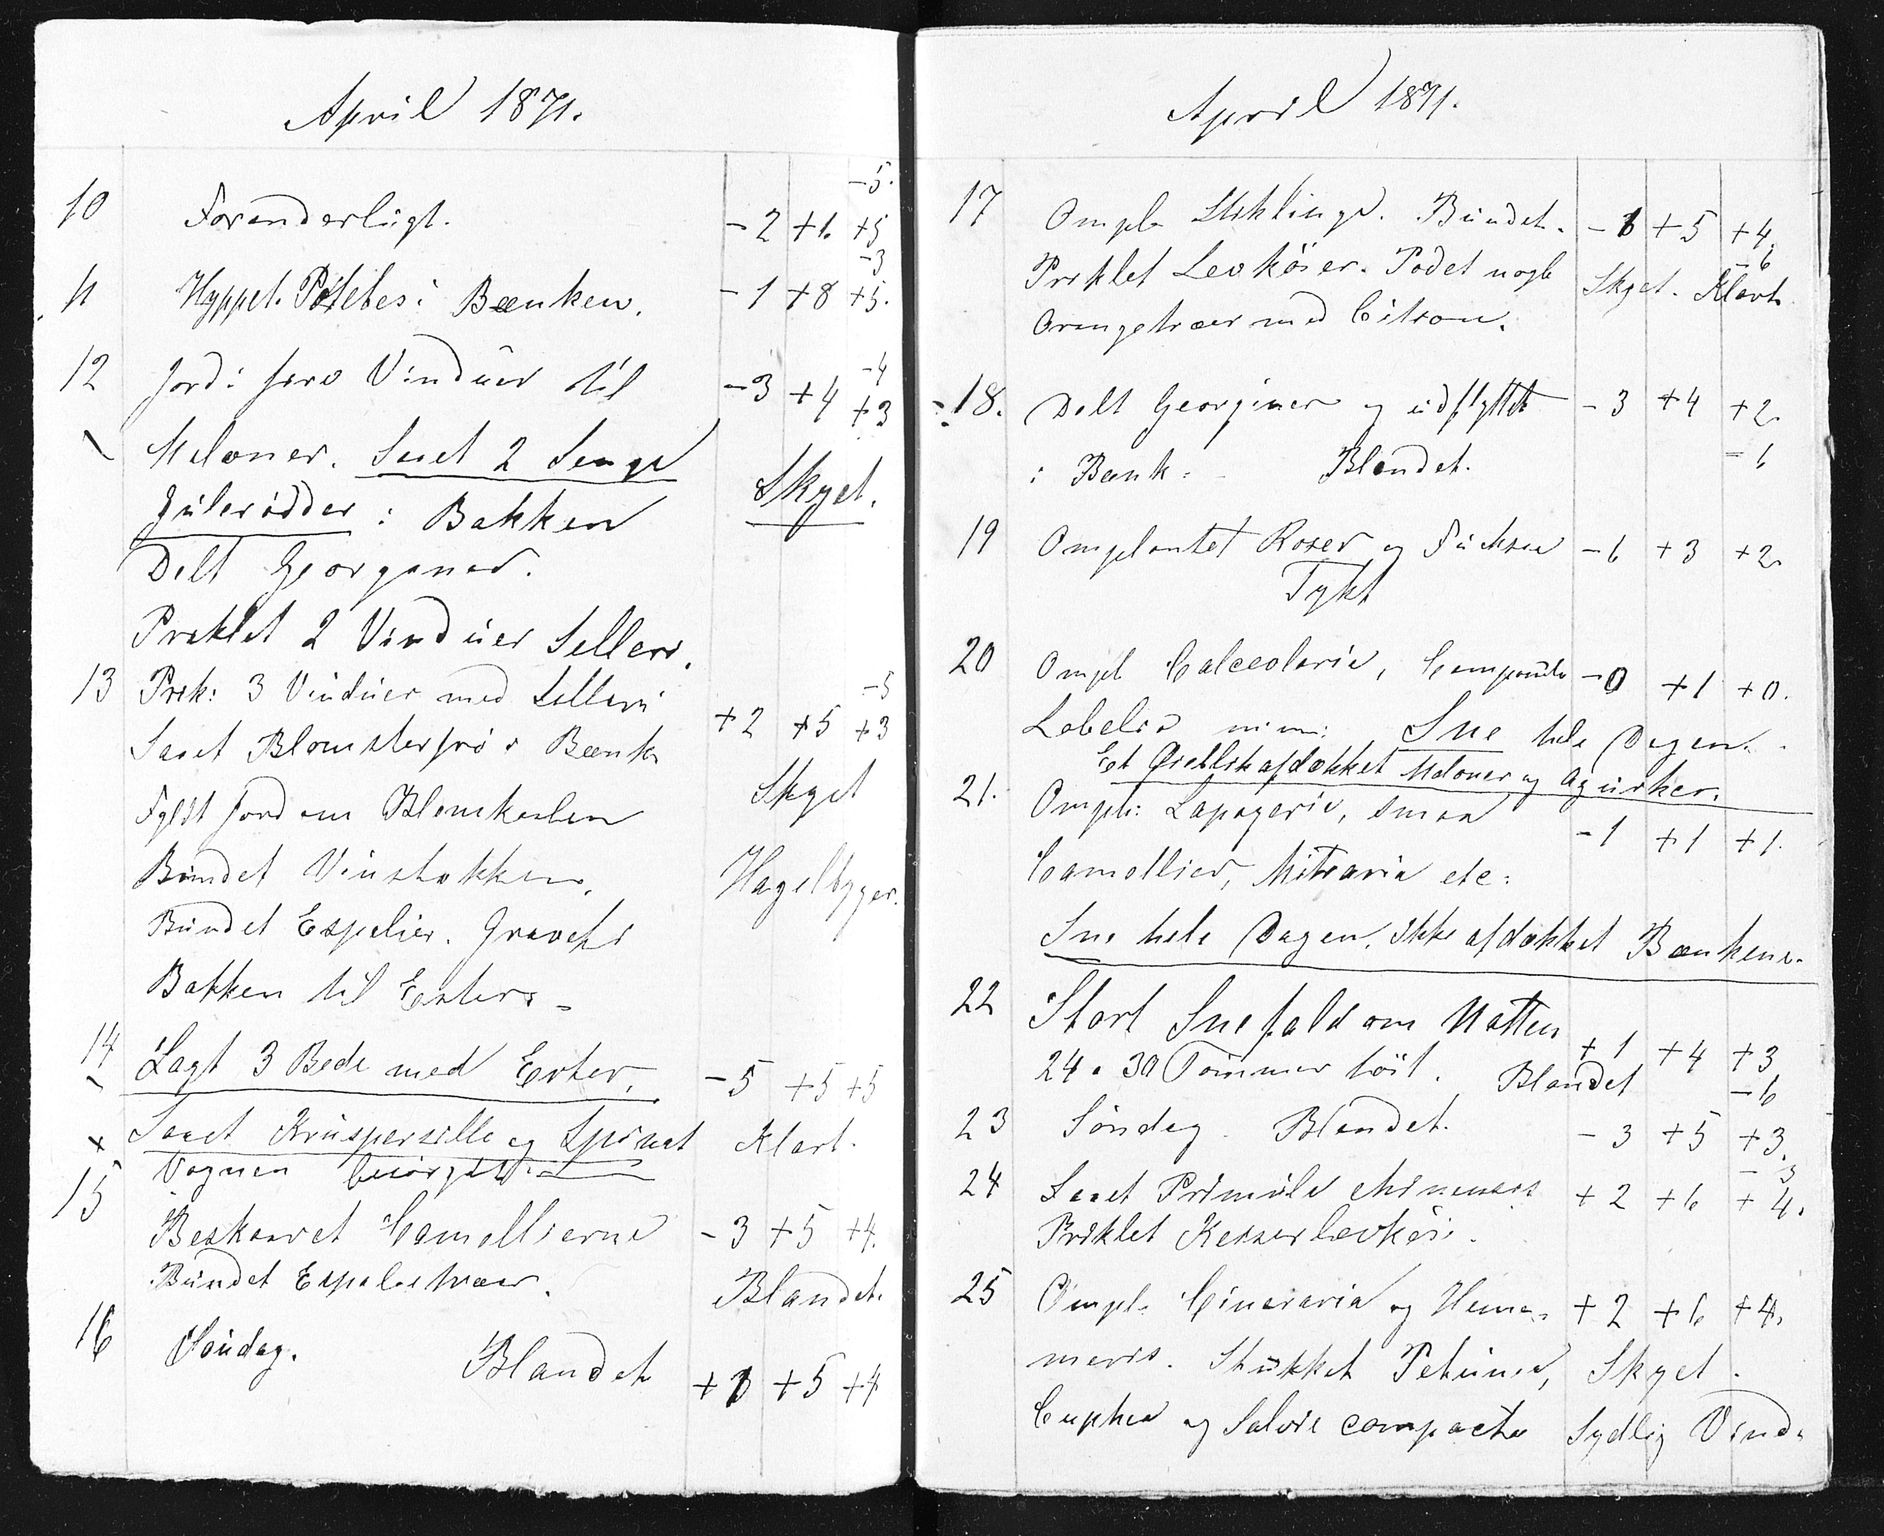 April 1871.
-5.
10 Foranderligt. -2 +1. +5
-3
11 Hyppet Potetes i Bænken. -1 +8 +5.
-4
12 Jord i fire Vinduer til -3 +4 +3
Meloner. Saaet 2 Senge
Skyet.
Gulerødder i Bakken
Delt Georginer.
Priklet 2 Vinduer Selleri.
13 Prik: 3 Vinduer med Selleri -5
+2 +5 +3
Saaet Blomsterfrö i Bænk
Fyldt Jord om Blomkaalen Skyet
Bundet Vinstokken. Hagelbyger.
Bundet Espalier. Gravet i
Bakken til Erter
14 Lagt 3 Bede med Erter. -5 +5 +5
x Saaet Kruspersille og Spinat Klart.
Vognen
15 Beskaaret Camellierne -3 +5 +4.
Bundet Espaliertræer. Blandet.
16 Söndag. Blandet +1 +5 +4
April 1871.
17 Ompl. Stiklinge. Bundet. -1 +5 +4.
-6
Priklet Levköier. Podet nogle Skyet. Klart.
Orangetræer med Citron.
18. Delt Georginer og udflyttet -3 +4 +2.
i Bænk: Blandet. -6
19 Omplantet Roser og Fuchsia -6 +3 +2.
Tykt
20 Ompl Calceolaria, Campanula -0 +1 +0.
Lobelia Sne hele Dagen.
Et Øieblik afdækket Meloner og Agurker.
21. Ompl: Lapageria, smaa
-1 +1 +1.
Camellier, Mitraria etc:
Sne hele Dagen. ikke afdækket Bænkene.
22 Stort Snefald om Natten
+1 +4 +3
24 a 30 Tommer höit. Blandet -6
23 Söndag. Blandet. -3 +5 +3.
-3
24 Saaet Primula chinensis +2 +6 +4.
Priklet Keiserlevköi.
25 Ompl. Cineraria og Hume- +2 +6 +4.
Stukket Petunia, Skyet.
Cuphea og Salvie compacta Sydlig Vind.